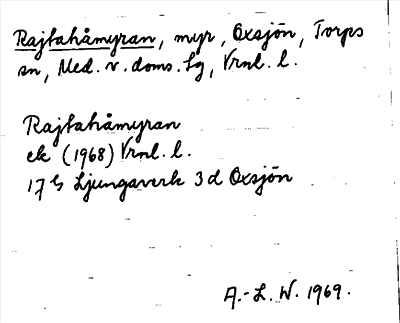 Rajtahåmyran, myr, Oxsjön, Torps
sn, Med. v. doms. lg, Vrnl. l.
Rajtahåmyran
ek (1968) Vrnl. l.
17 G Ljungaverk 3 d Oxsjön
A.-L. W. 1969.